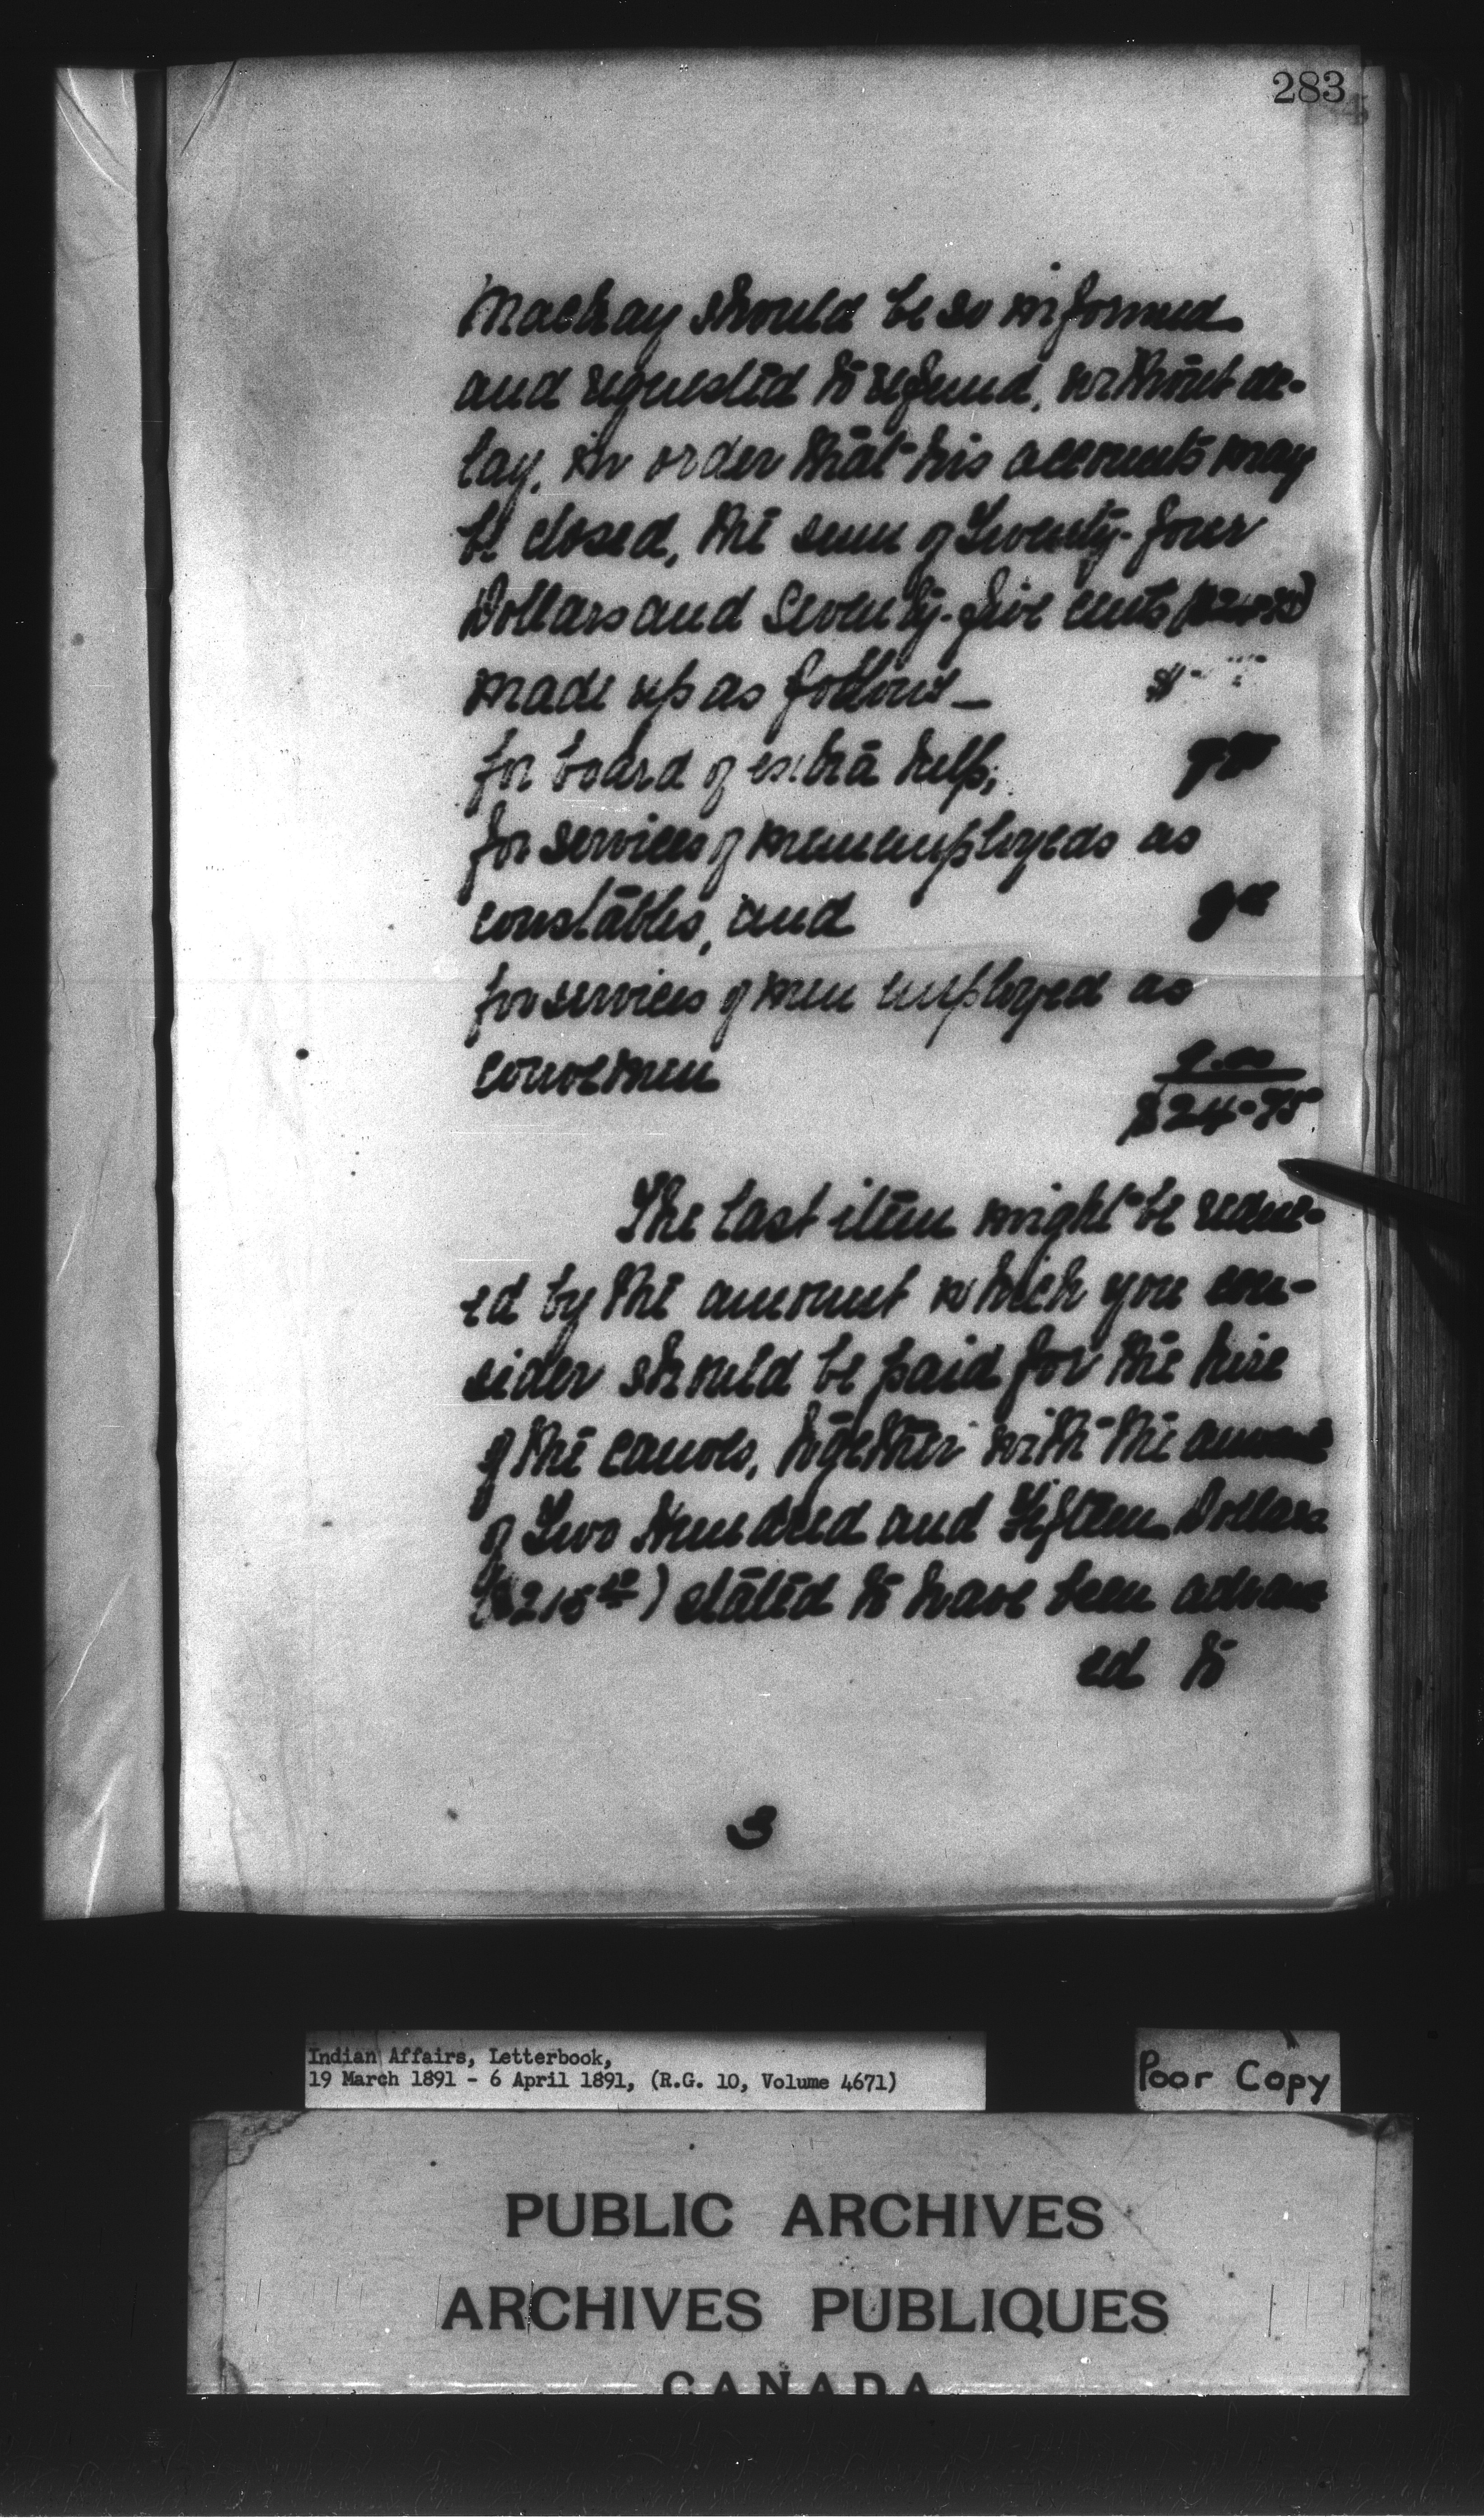 283
Mackay should be so informed
and requested to refund, without de-
lay, in order that his accounts may
be closed, the sum of Twenty-four
Dollars and Seventy-five cents ($24.75)
made up as follows — $
for board of extra help,
for services of men employed as
constables, and
for services of men employed as
canoemen 9.00
$24.75
The last item might be reduc-
ed by the amount which you con-
sider should be paid for the hire
of the canoes, together with the amount
of Two Hundred and Fifteen Dollars
($215) stated to have been advanc
ed to
3
Indian Affairs, Letterbook,
19 March 1891 - 6 April 1891, (R.G. 10, Volume 4671)
Poor Copy
PUBLIC ARCHIVES
ARCHIVES PUBLIQUES
CANADA